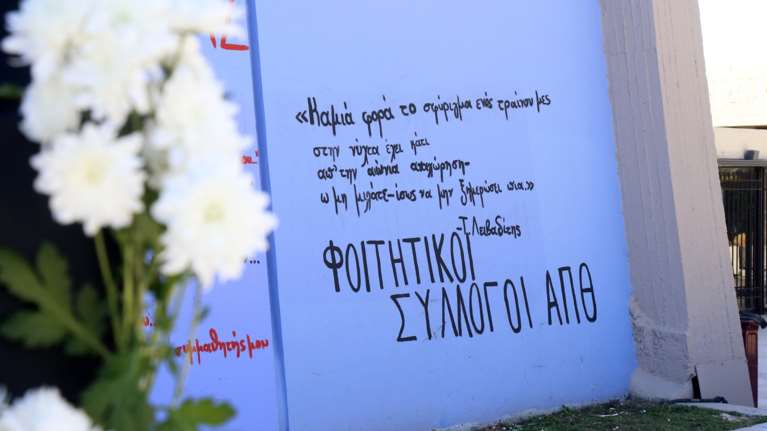 «Καμιά φορά το σφύριγμα ενός τραίνου μες
στην νύχτα έχει κάτι
απ' την αιώνια αποχώρηση-
ω μη μιλάτε-ίσως να μην ξημερώσει πια.»
-Τ. Λειβαδίτης
ΦΟΙΤΗΤΙΚΟΙ
ΣΥΛΛΟΓΟΙ ΑΠΘ
συμμαθητής μου